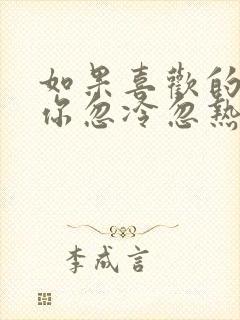 如果喜歡的
你忽冷忽熱
李成言